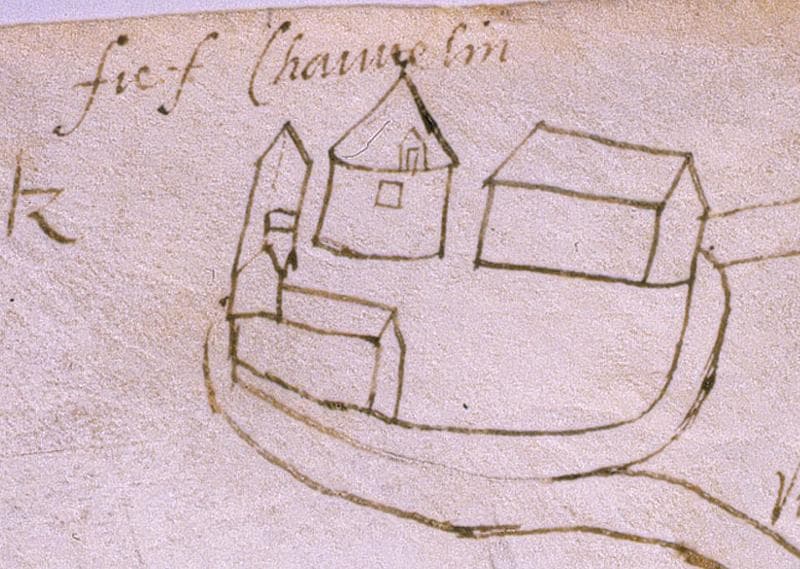 fief Chauvelin
k